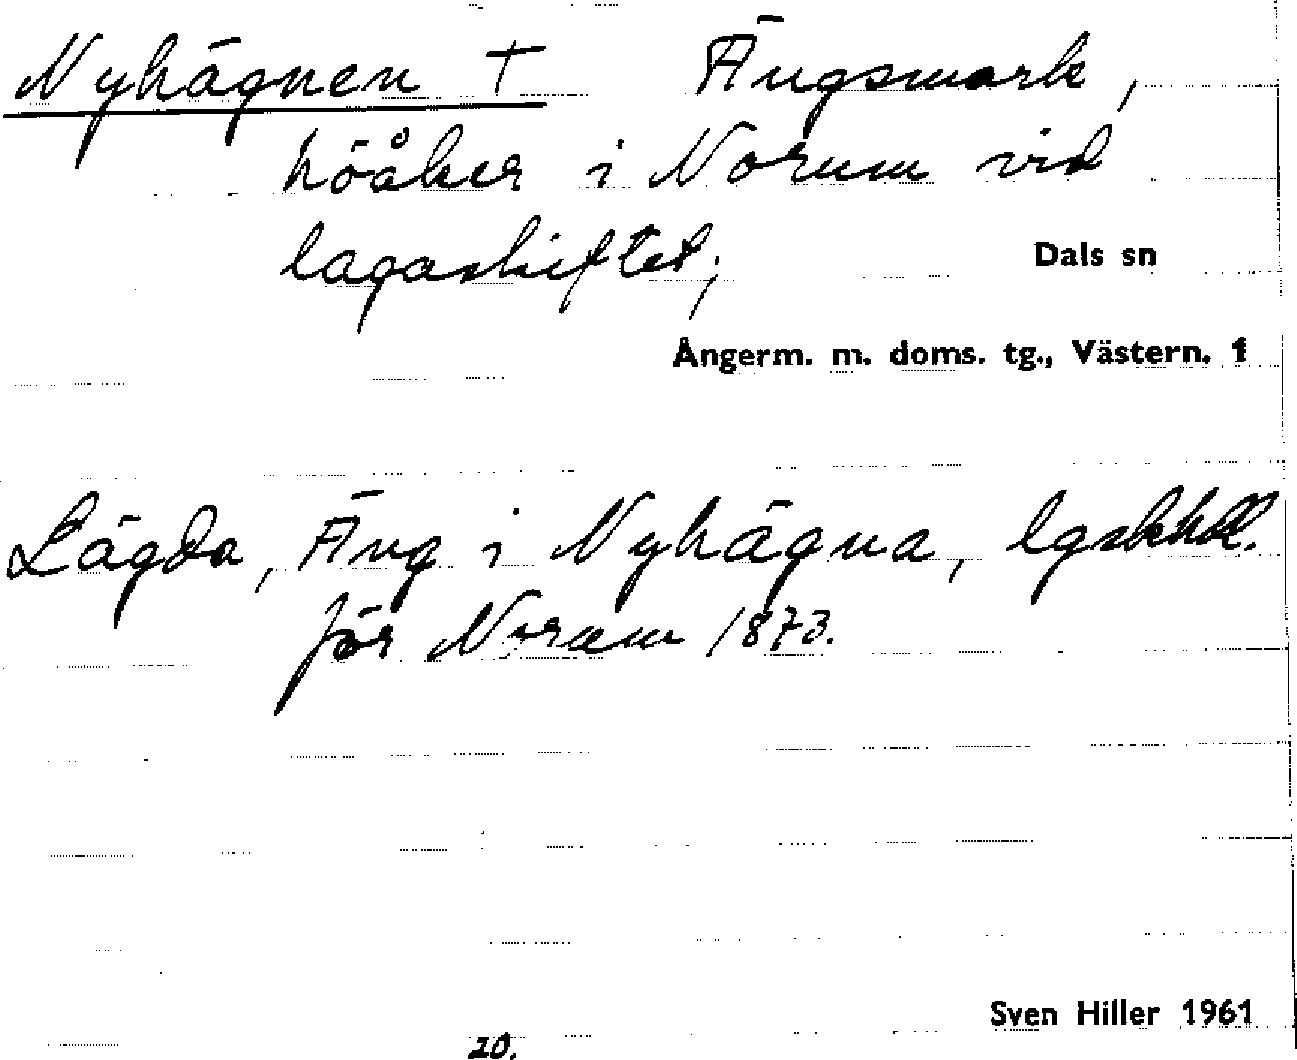 Nyhägnen † Ängsmark,
höåker i Norum vid
lagaskiftet;
Dals sn
Ångerm. m. doms. tg., Västern. 1
Lägda, Äng i Nyhägna,
för Norum 1873.
Sven Hiller 1961
20.